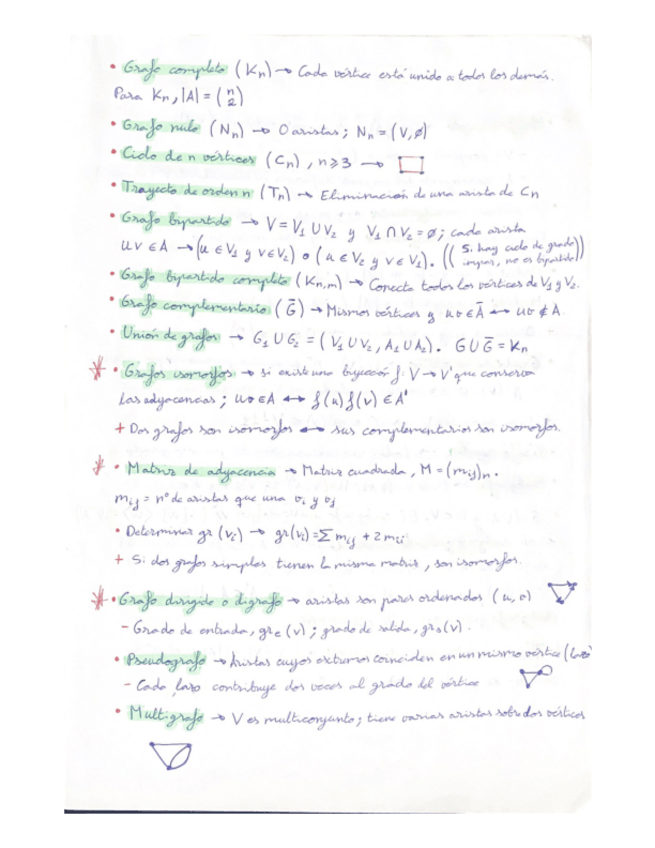 • Grafo completo (Kn) → Cada vértice está unido a todos los demás.
Para Kn, |A| = (n 2)
• Grafo nulo (Nn) → 0 aristas; Nn = (V, ø)
• Ciclo de n vértices (Cn), n ≥ 3 →
• Trayecto de orden n (Tn) → Eliminación de una arista de Cn
• Grafo bipartido → V = V1 ∪ V2 y V1 ∩ V2 = ø; cada arista
uv ∈ A → (u ∈ V1 y v ∈ V2) o (u ∈ V2 y v ∈ V1). ((Si hay ciclo de grado
impar, no es bipartido))
• Grafo bipartido completo (Kn,m) → Conecta todos los vértices de V1 y V2.
• Grafo complementario (G̅) → Mismos vértices y uv ∈ A̅ ↔ uv ∉ A.
• Unión de grafos → G1 ∪ G2 = (V1 ∪ V2, A1 ∪ A2). G ∪ G̅ = Kn
* • Grafos isomorfos → si existe una biyección f: V → V' que conserva
las adyacencias; uv ∈ A ↔ f(u)f(v) ∈ A'
+ Dos grafos son isomorfos ↔ sus complementarios son isomorfos.
* • Matriz de adyacencia → Matriz cuadrada, M = (mij)n.
mij = nº de aristas que una vi y vj
• Determinar gr(vi) → gr(vi) = Σ mij + 2mii
+ Si dos grafos simples tienen la misma matriz, son isomorfos.
* • Grafo dirigido o digrafo → aristas son pares ordenados (u, v)
- Grado de entrada, gre(v); grado de salida, grs(v).
• Pseudografo → Aristas cuyos extremos coinciden en un mismo vértice (lazo)
- Cada lazo contribuye dos veces al grado del vértice
• Multigrafo → V es multiconjunto; tiene varias aristas sobre dos vértices